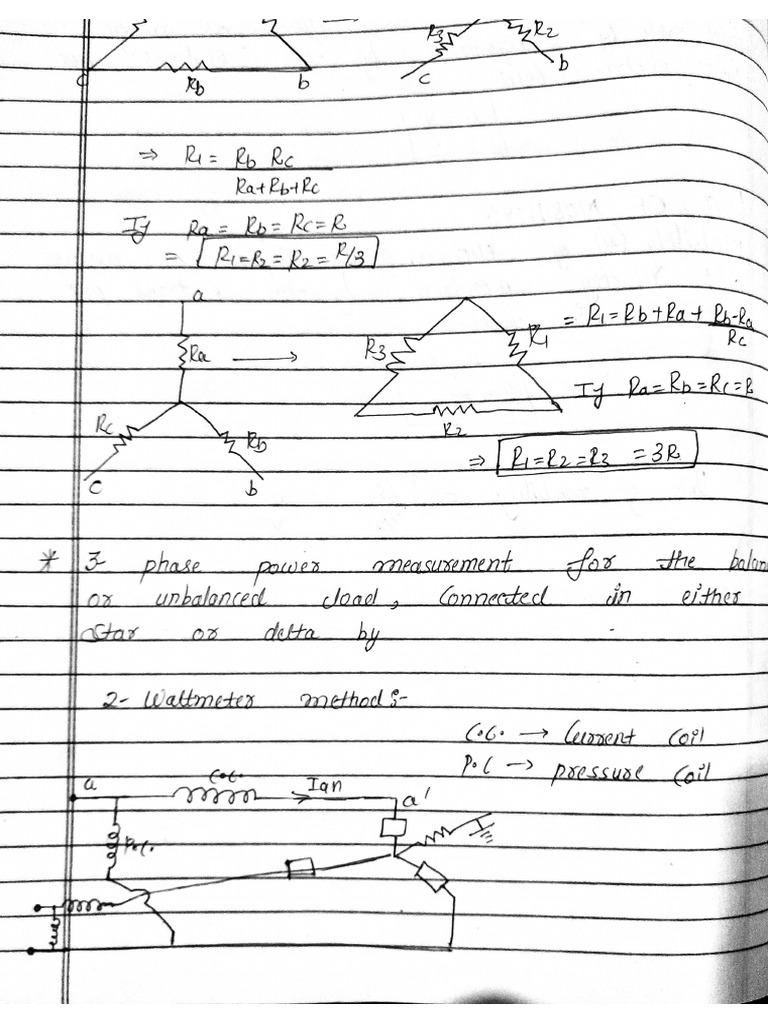 R3 R2
c Rb b c b
⇒ R1 = Rb Rc
Ra+Rb+Rc
If Ra = Rb = Rc = R
= R1=R2=R2=R/3
a
Ra → R3 R1 = R1=Rb+Ra+ Rb-Ra
Rc
If Ra=Rb=Rc=R
Rc Rb R2
⇒ R1=R2=R3 =3R
c b
* 3- phase power measurement for the balan
or unbalanced load, Connected in either
star or delta by
2- Wattmeter method:-
C.C. → Current Coil
P.C → pressure Coil
a C.C. Ian a'
P.C.